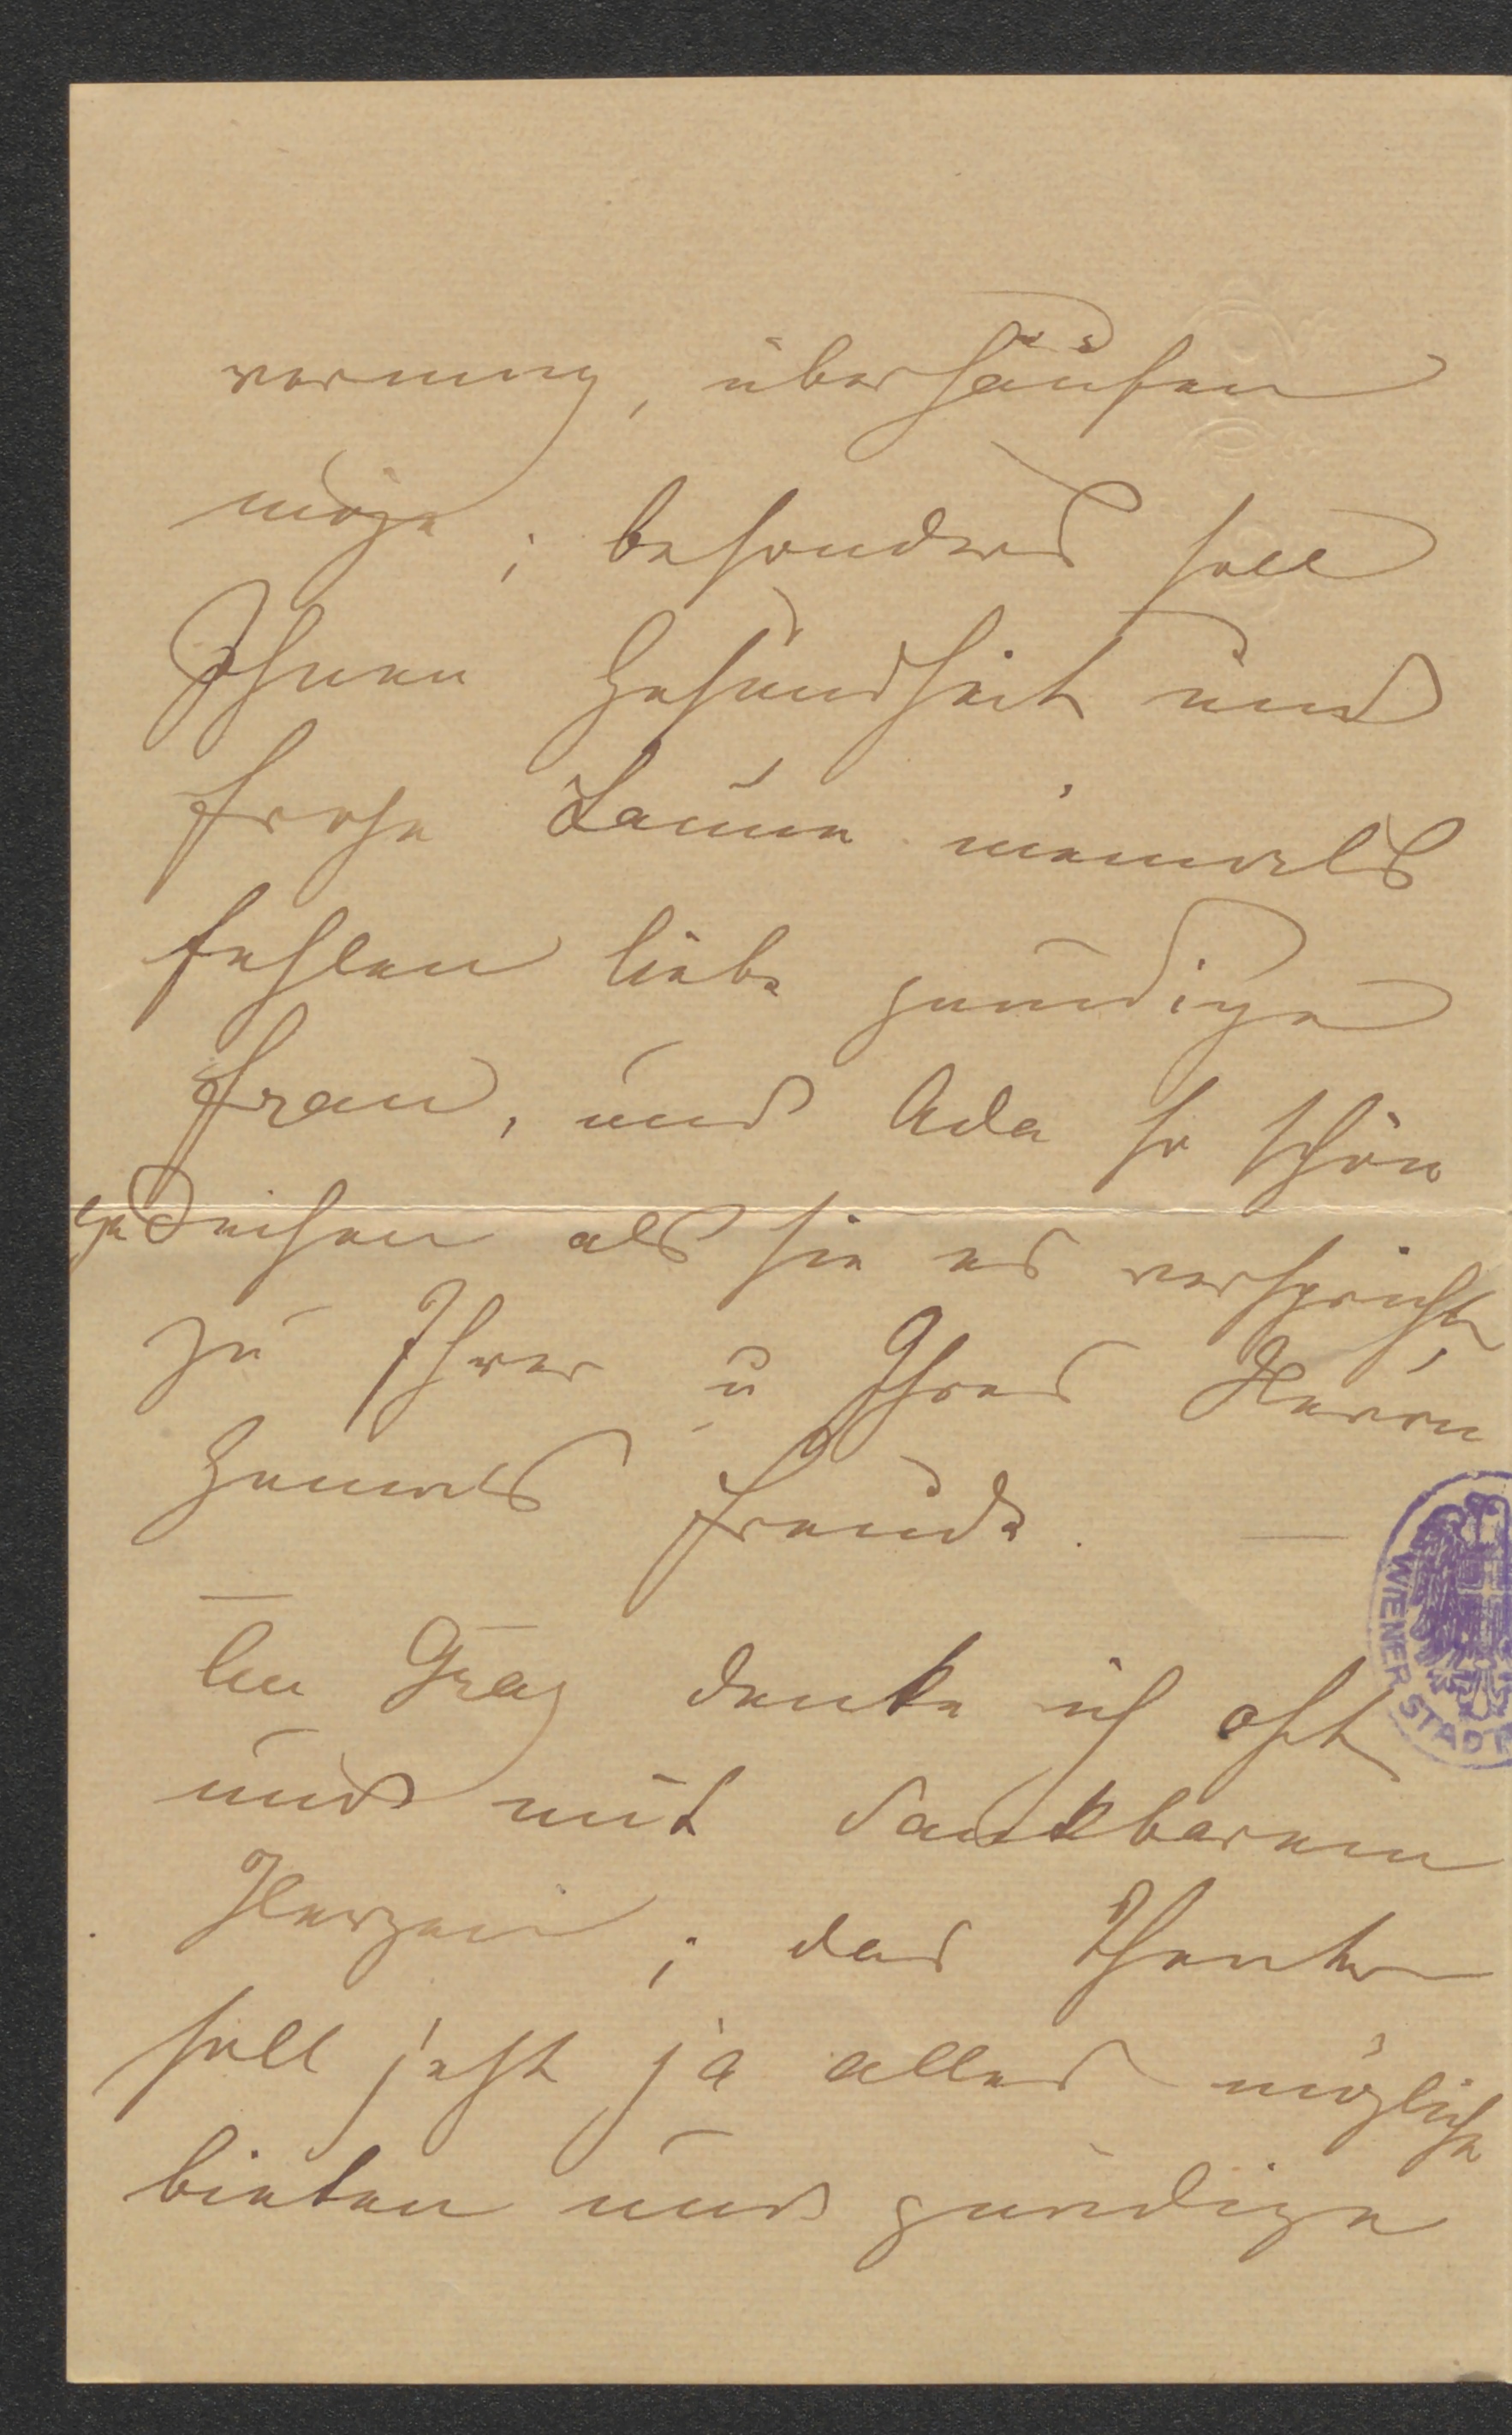 überhäufen
möge; besonders soll
Ihnen Gesundheit und
frohe Laune niemals
fehlen liebe gnädige
Frau, und Ada so schön
gedeihen als sie es verspricht,
zu Ihrer u Ihres Herrn
Gemals Freude. —
— An Graz denke ich oft
und mit dankbarem
Herzen; das Theater
soll jetzt ja alles mögliche
bieten und gnädige
WIENER STADT